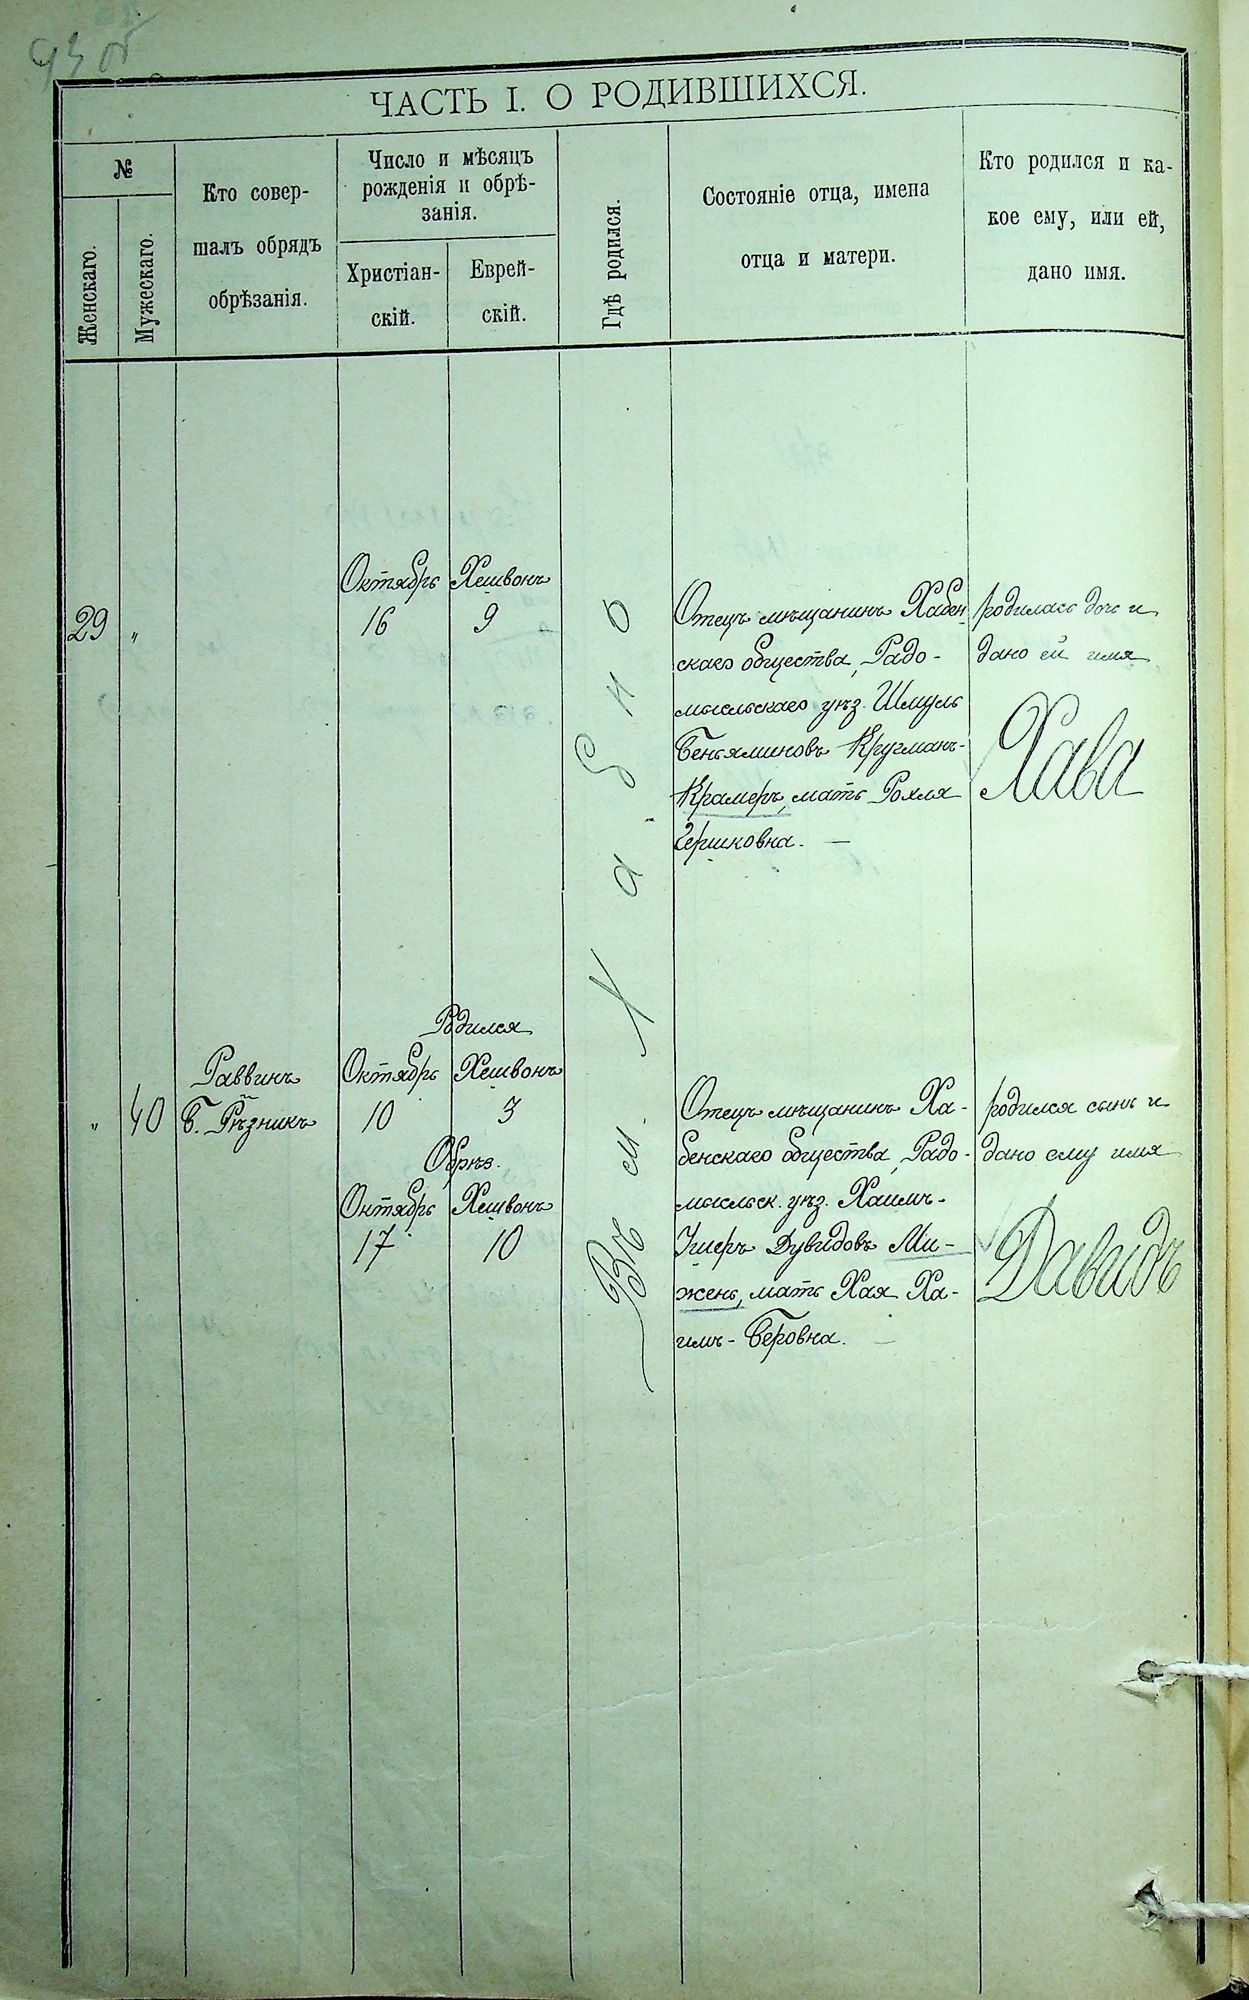 43 об
ЧАСТЬ I. О РОДИВШИХСЯ.
№
Женскаго.
Мужескаго.
Кто совер-
шалъ обрядъ
обрѣзанія.
Число и мѣсяцъ
рожденія и обрѣ-
занія.
Христіан-
скій.
Еврей-
скій.
Гдѣ родился.
Состояніе отца, имена
отца и матери.
Кто родился и ка-
кое ему, или ей,
дано имя.
29 "
Октябрь
16
Хешвонъ
9
Въ м. Хабно
Отецъ мѣщанинъ Хабен
скаго общества, Радо-
мысльскаго уѣз. Шмуль
Беньяминовъ Кругманъ-
Крамеръ, мать Рохля
Гершковна. —
родилась дочь и
дано ей имя
Хава
" 40
Раввинъ
Б. Рѣзникъ
Родился
Октябрь Хешвонъ
10 3
Обрѣз.
Октябрь Хешвонъ
17 10
Отецъ мѣщанинъ Ха-
бенскаго общества, Радо-
мысльск. уѣз. Хаимъ-
Ушеръ Дувидовъ Ми-
жень, мать Хая Ха-
имъ-Беровна. —
родился сынъ и
дано ему имя
Давидъ